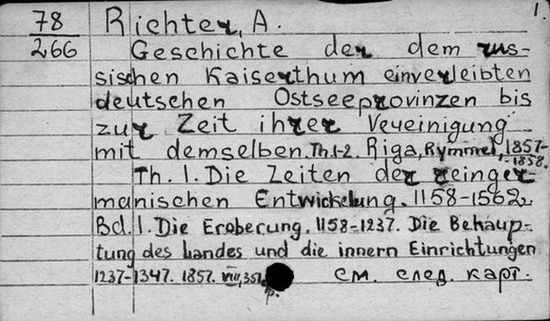 1.
78
266
Richter, A.
Geschichte der dem rus-
sischen Kaiserthum einverleibten
deutschen Ostseeprovinzen bis
zur Zeit ihrer Vereinigung
mit demselben. Th.1-2. Riga, Kymmel, 1857-
-1858.
Th. 1. Die Zeiten der reinger-
manischen Entwickelung. 1158-1562.
Bd. 1. Die Eroberung. 1158-1237. Die Behaup-
tung des Landes und die innern Einrichtungen
1237-1347. 1857. VIII, 351
p.
см. след. карт.